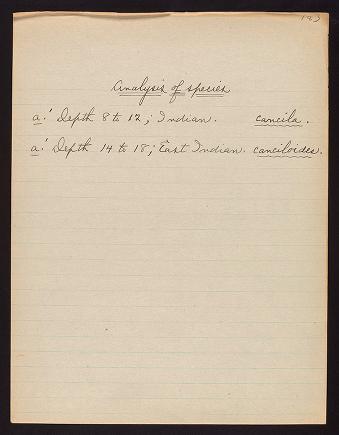 183
Analysis of species
a.' Depth 8 to 12; Indian. cancila.
a.' Depth 14 to 18; East Indian. canciloides.